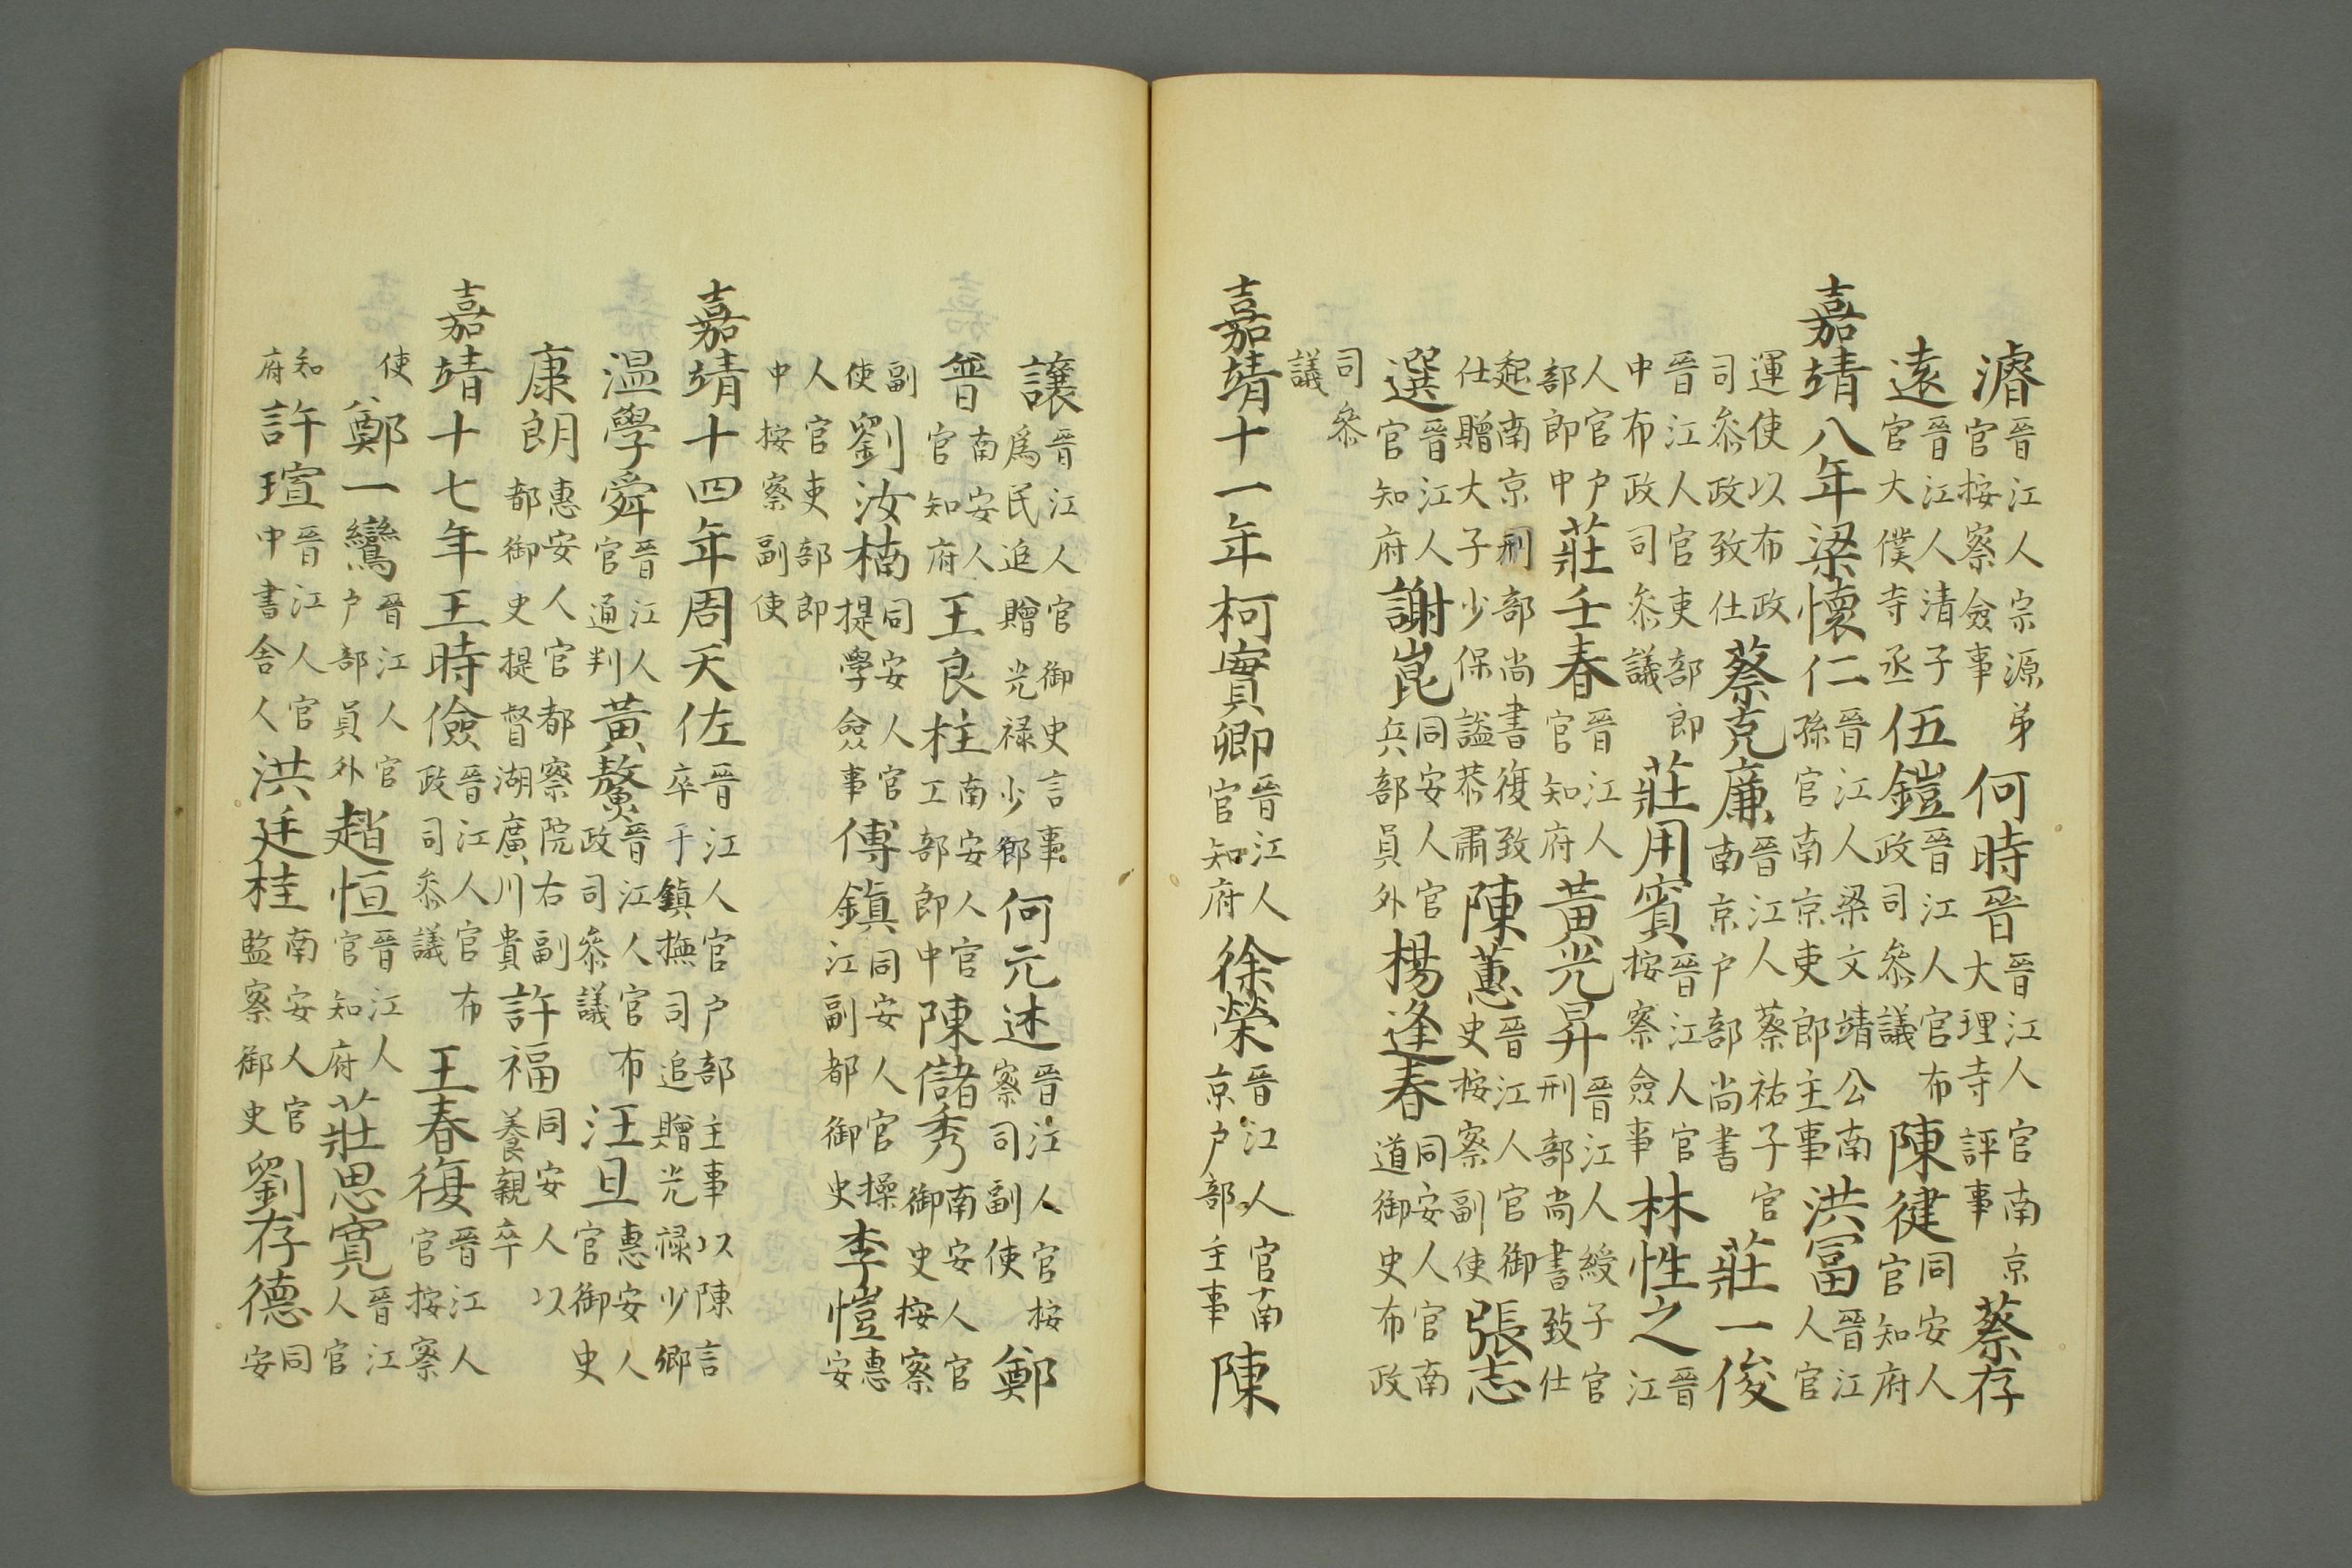 濬晉江人宗源弟官按察僉事何時晉晉江人官南京大理寺評事蔡存
遠晉江人清子官大僕寺丞伍鎧晉江人官布政司叅議陳健同安人官知府
嘉靖八年梁懷仁晉江人梁文靖公南孫官南京吏郎主事洪富晉江人官
運使以布政司叅政致仕蔡克廉晉江人蔡祐子官南京户部尚書莊一俊
晉江人官吏部郎中布政司叅議莊用賓晉江人官按察僉事林性之晉江
人官户部郎中莊壬春晉江人官知府黃光昇晉江人綬子官刑部尚書致仕
起南京刑部尚書復致仕贈大子少保謚恭肅陳蕙晉江人官御史按察副使張志
選晉江人官知府謝崑同安人官兵部員外楊逢春同安人官南道御史布政
司叅議
嘉靖十一年柯實卿晉江人官知府徐榮晉江人官南京户部主事陳
讓晉江人官御史言事為民追贈光禄少卿何元述晉江人官按察司副使鄭
普南安人官知府王良柱南安人官工部郎中陳儲秀南安人官御史按察
副使劉汝楠同安人官提學僉事傅鎮同安人官操江副都御史李愷惠安
人官吏部郎中按察副使
嘉靖十四年周天佐晉江人官户部主事以陳言卒于鎮撫司追贈光禄少卿
温學舜晉江人官通判黃鰲晉江人官布政司叅議汪旦惠安人官御史
康朗惠安人官都察院右副都御史提督湖廣川貴許福同安人以養親卒
嘉靖十七年王時儉晉江人官布政司叅議王春復晉江人官按察
使鄭一鸞晉江人官户部員外趙恒晉江人官知府莊思寬晉江人官
知府許瑄晉江人官中書舍人洪廷桂南安人官監察御史劉存德同安